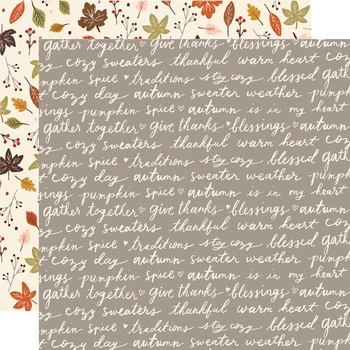 gather together ♡ give thanks ♡ blessings ♡ autumn
cozy sweaters thankful warm heart cozy
pumpkin spice ♡ traditions stay cozy blessed gath
cozy day autumn sweater weather pumpkin
ings pumpkin spice ♡ autumn is in my heart
gather together ♡ give thanks ♡ blessings ♡ autumn
cozy sweaters thankful warm heart cozy
pumpkin spice ♡ traditions stay cozy blessed gath
cozy day autumn sweater weather pumpkin
ings pumpkin spice ♡ autumn is in my heart
gather together ♡ give thanks ♡ blessings ♡ autumn
cozy sweaters thankful warm heart cozy
pumpkin spice ♡ traditions stay cozy blessed gath
cozy day autumn sweater weather pumpkin